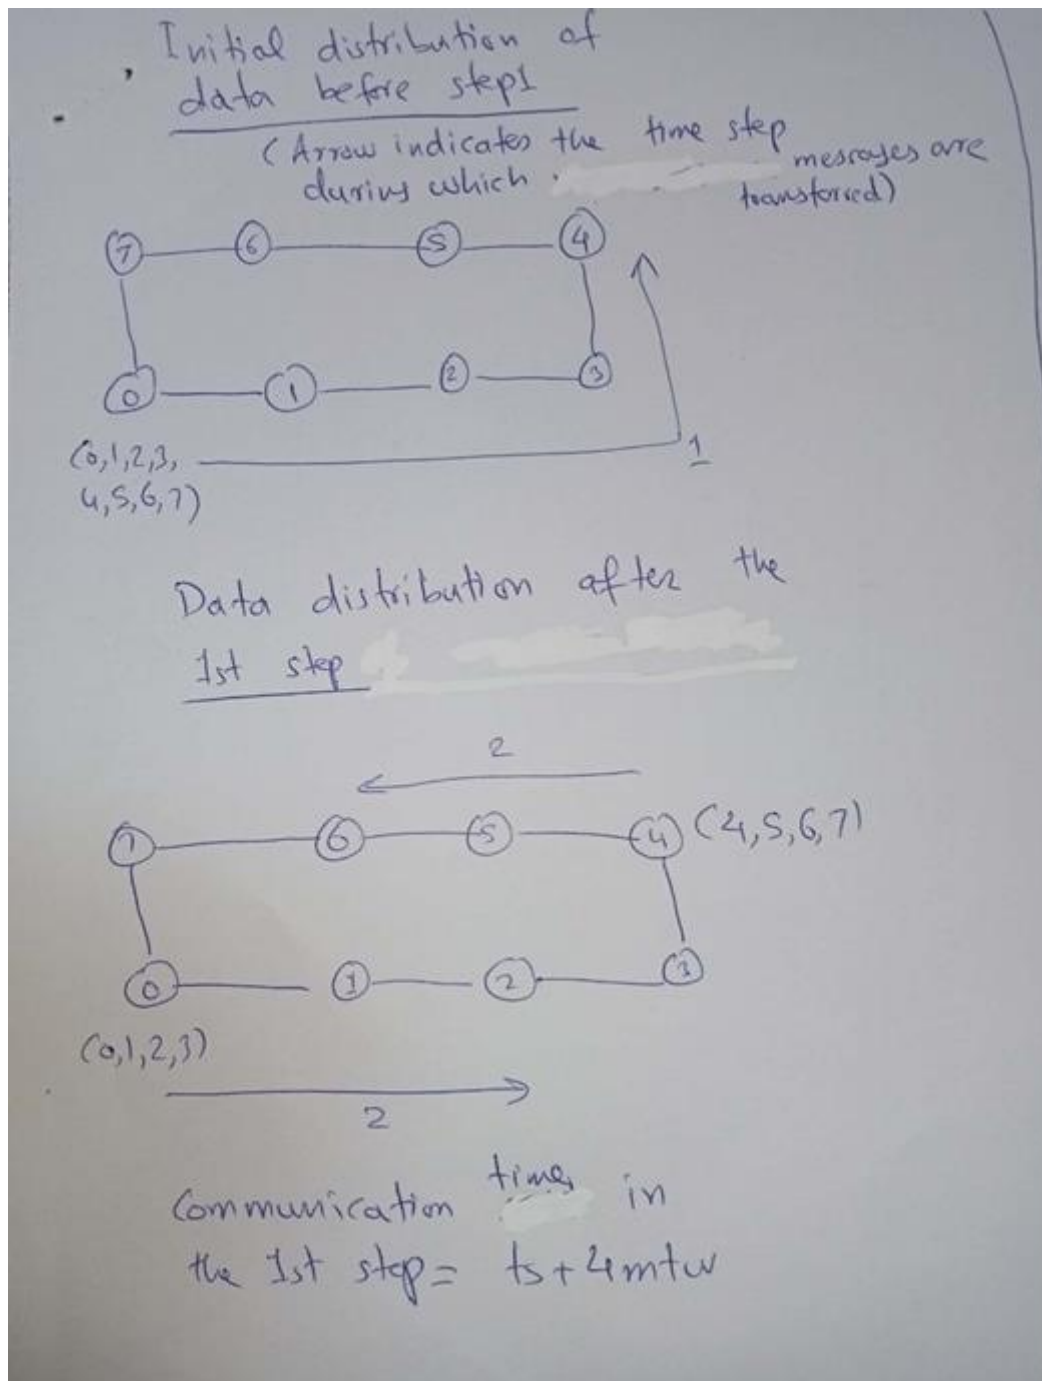 Initial distribution of
data before step1
(Arrow indicates the time step
during which messages are
transferred)
7 6 5 4
0 1 2 3
(0,1,2,3,
4,5,6,7)
1
Data distribution after the
1st step
2
7 6 5 4 (4,5,6,7)
0 1 2 3
(0,1,2,3)
2
Communication time in
the 1st step = ts + 4mtw